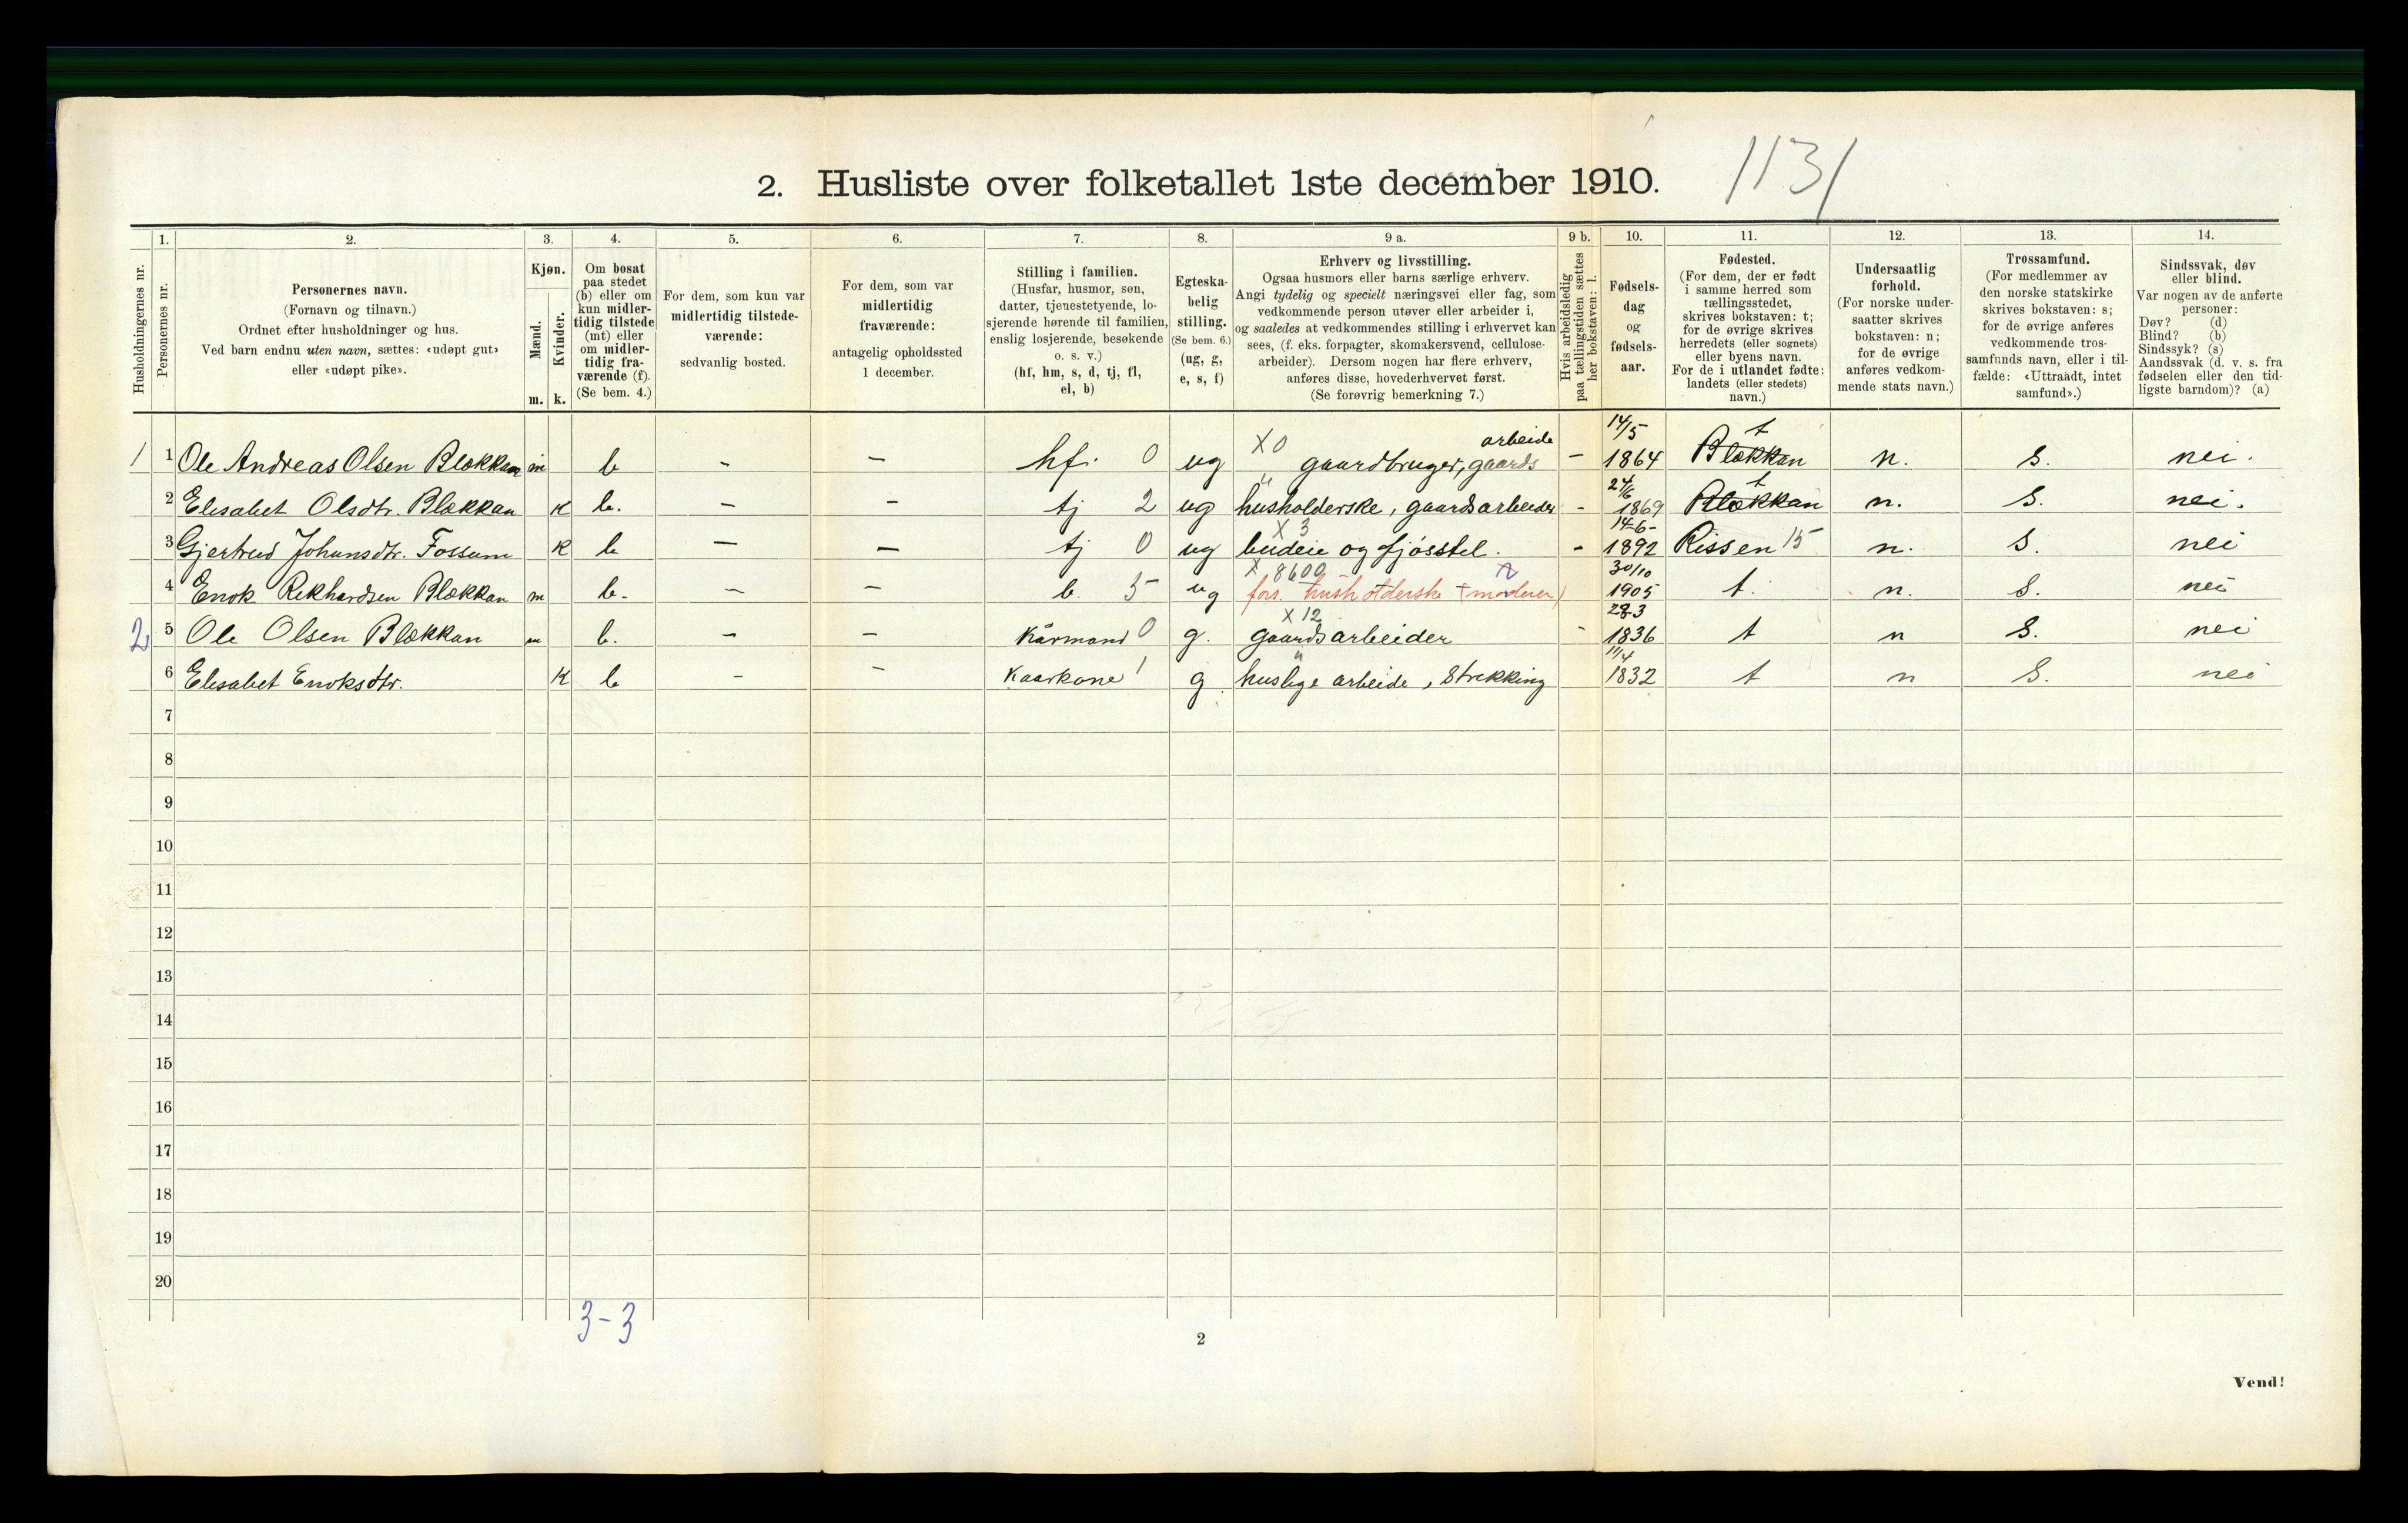 2. Husliste over folketallet 1ste december 1910.
1131
1. 2. 3. 4. 5. 6. 7. 8. 9 a. 9 b. 10. 11. 12. 13. 14.
Husholdningernes nr.
Personernes nr.
Personernes navn.
(Fornavn og tilnavn.)
Ordnet efter husholdninger og hus.
Ved barn endnu uten navn, sættes: «udøpt gut»
eller «udøpt pike».
Kjøn.
Mænd.
Kvinder.
m. k.
Om bosat
paa stedet
(b) eller om
kun midler-
tidig tilstede
(mt) eller
om midler-
tidig fra-
værende (f).
(Se bem. 4.)
For dem, som kun var
midlertidig tilstede-
værende:
sedvanlig bosted.
For dem, som var
midlertidig
fraværende:
antagelig opholdssted
1 december.
Stilling i familien.
(Husfar, husmor, søn,
datter, tjenestetyende, lo-
sjerende hørende til familien,
enslig losjerende, besøkende
o. s. v.)
(hf, hm, s, d, tj, fl,
el, b)
Egteska-
belig
stilling.
(Se bem. 6.)
(ug, g,
e, s, f)
Erhverv og livsstilling.
Ogsaa husmors eller barns særlige erhverv.
Angi tydelig og specielt næringsvei eller fag, som
vedkommende person utøver eller arbeider i,
og saaledes at vedkommendes stilling i erhvervet kan
sees, (f. eks. forpagter, skomakersvend, cellulose-
arbeider). Dersom nogen har flere erhverv,
anføres disse, hovederhvervet først.
(Se forøvrig bemerkning 7.)
Hvis arbeidsledig
paa tællingstiden sættes
her bokstaven: l.
Fødsels-
dag
og
fødsels-
aar.
Fødested.
(For dem, der er født
i samme herred som
tællingsstedet,
skrives bokstaven: t;
for de øvrige skrives
herredets (eller sognets)
eller byens navn.
For de i utlandet fødte:
landets (eller stedets)
navn.)
Undersaatlig
forhold.
(For norske under-
saatter skrives
bokstaven: n;
for de øvrige
anføres vedkom-
mende stats navn.)
Trossamfund.
(For medlemmer av
den norske statskirke
skrives bokstaven: s;
for de øvrige anføres
vedkommende tros-
samfunds navn, eller i til-
fælde: «Uttraadt, intet
samfund».)
Sindssvak, døv
eller blind.
Var nogen av de anførte
personer:
Døv? (d)
Blind? (b)
Sindssyk? (s)
Aandssvak (d. v. s. fra
fødselen eller den tid-
ligste barndom)? (a)
X0 arbeide 14/5 t
1 1 Ole Andreas Olsen Blekkan m b - - hf. 0 ug gaardbruger, gaards - 1864 Blekkan n. S. nei.
" 24/6 t
2 Elisabet Olsdtr. Blekkan k b. - - tj 2 ug husholderske, gaardsarbeider - 1869 Blekkan n. S. nei.
X 3 14-6-
3 Gjertrud Johansdtr. Fossum k b - - tj 0 ug budeie og fjøsstel. - 1892 Rissen 15 n. S. nei
X 8600 30/10
4 Enok Rikhardsen Blekkan m b. - - b. 5 ug fors. husholderske (moderen) 1905 t. n. S. nei
X 12 28-3
2 5 Ole Olsen Blekkan m b. - - Kårmand 0 g. gaardsarbeider - 1836 t n S. nei
" 11/4
6 Elisabet Enoksdtr. k b - - Kaarkone 1 g huslige arbeide, Strikking 1832 t n S. nei
7
8
9
10
11
12
13
14
15
16
17
18
19
20
3-3
2
Vend!